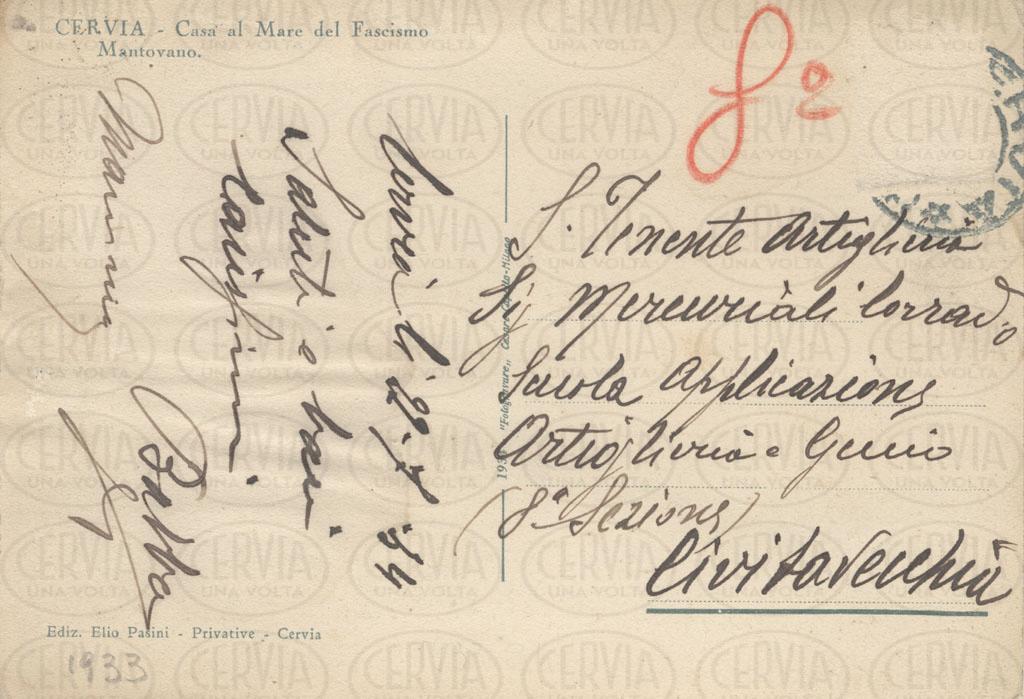 CERVIA - Casa al Mare del Fascismo
Mantovano.
Cervia li 29.7.34
Saluti e baci
Carissimi
Mamma
8ª
S. Tenente Artiglieria
Sig Mercuriali Corrado
Scuola Applicazione
Artiglieria e Genio
(8ª Sezione)
Civitavecchia
"Fotogravure" Cesare Capello-Milano
Ediz. Elio Pasini - Privative - Cervia
1933
CERVIA
UNA VOLTA